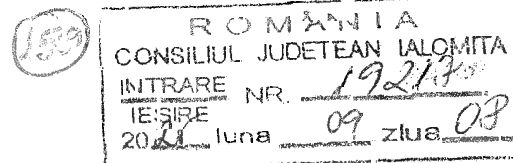 ROMÂNIA
CONSILIUL JUDETEAN IALOMITA
INTRARE NR.
IESIRE
2021 luna 09 ziua 08